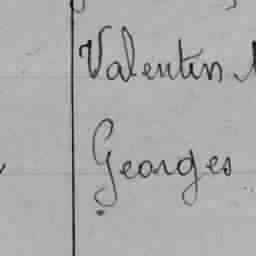 Valentin
Georges